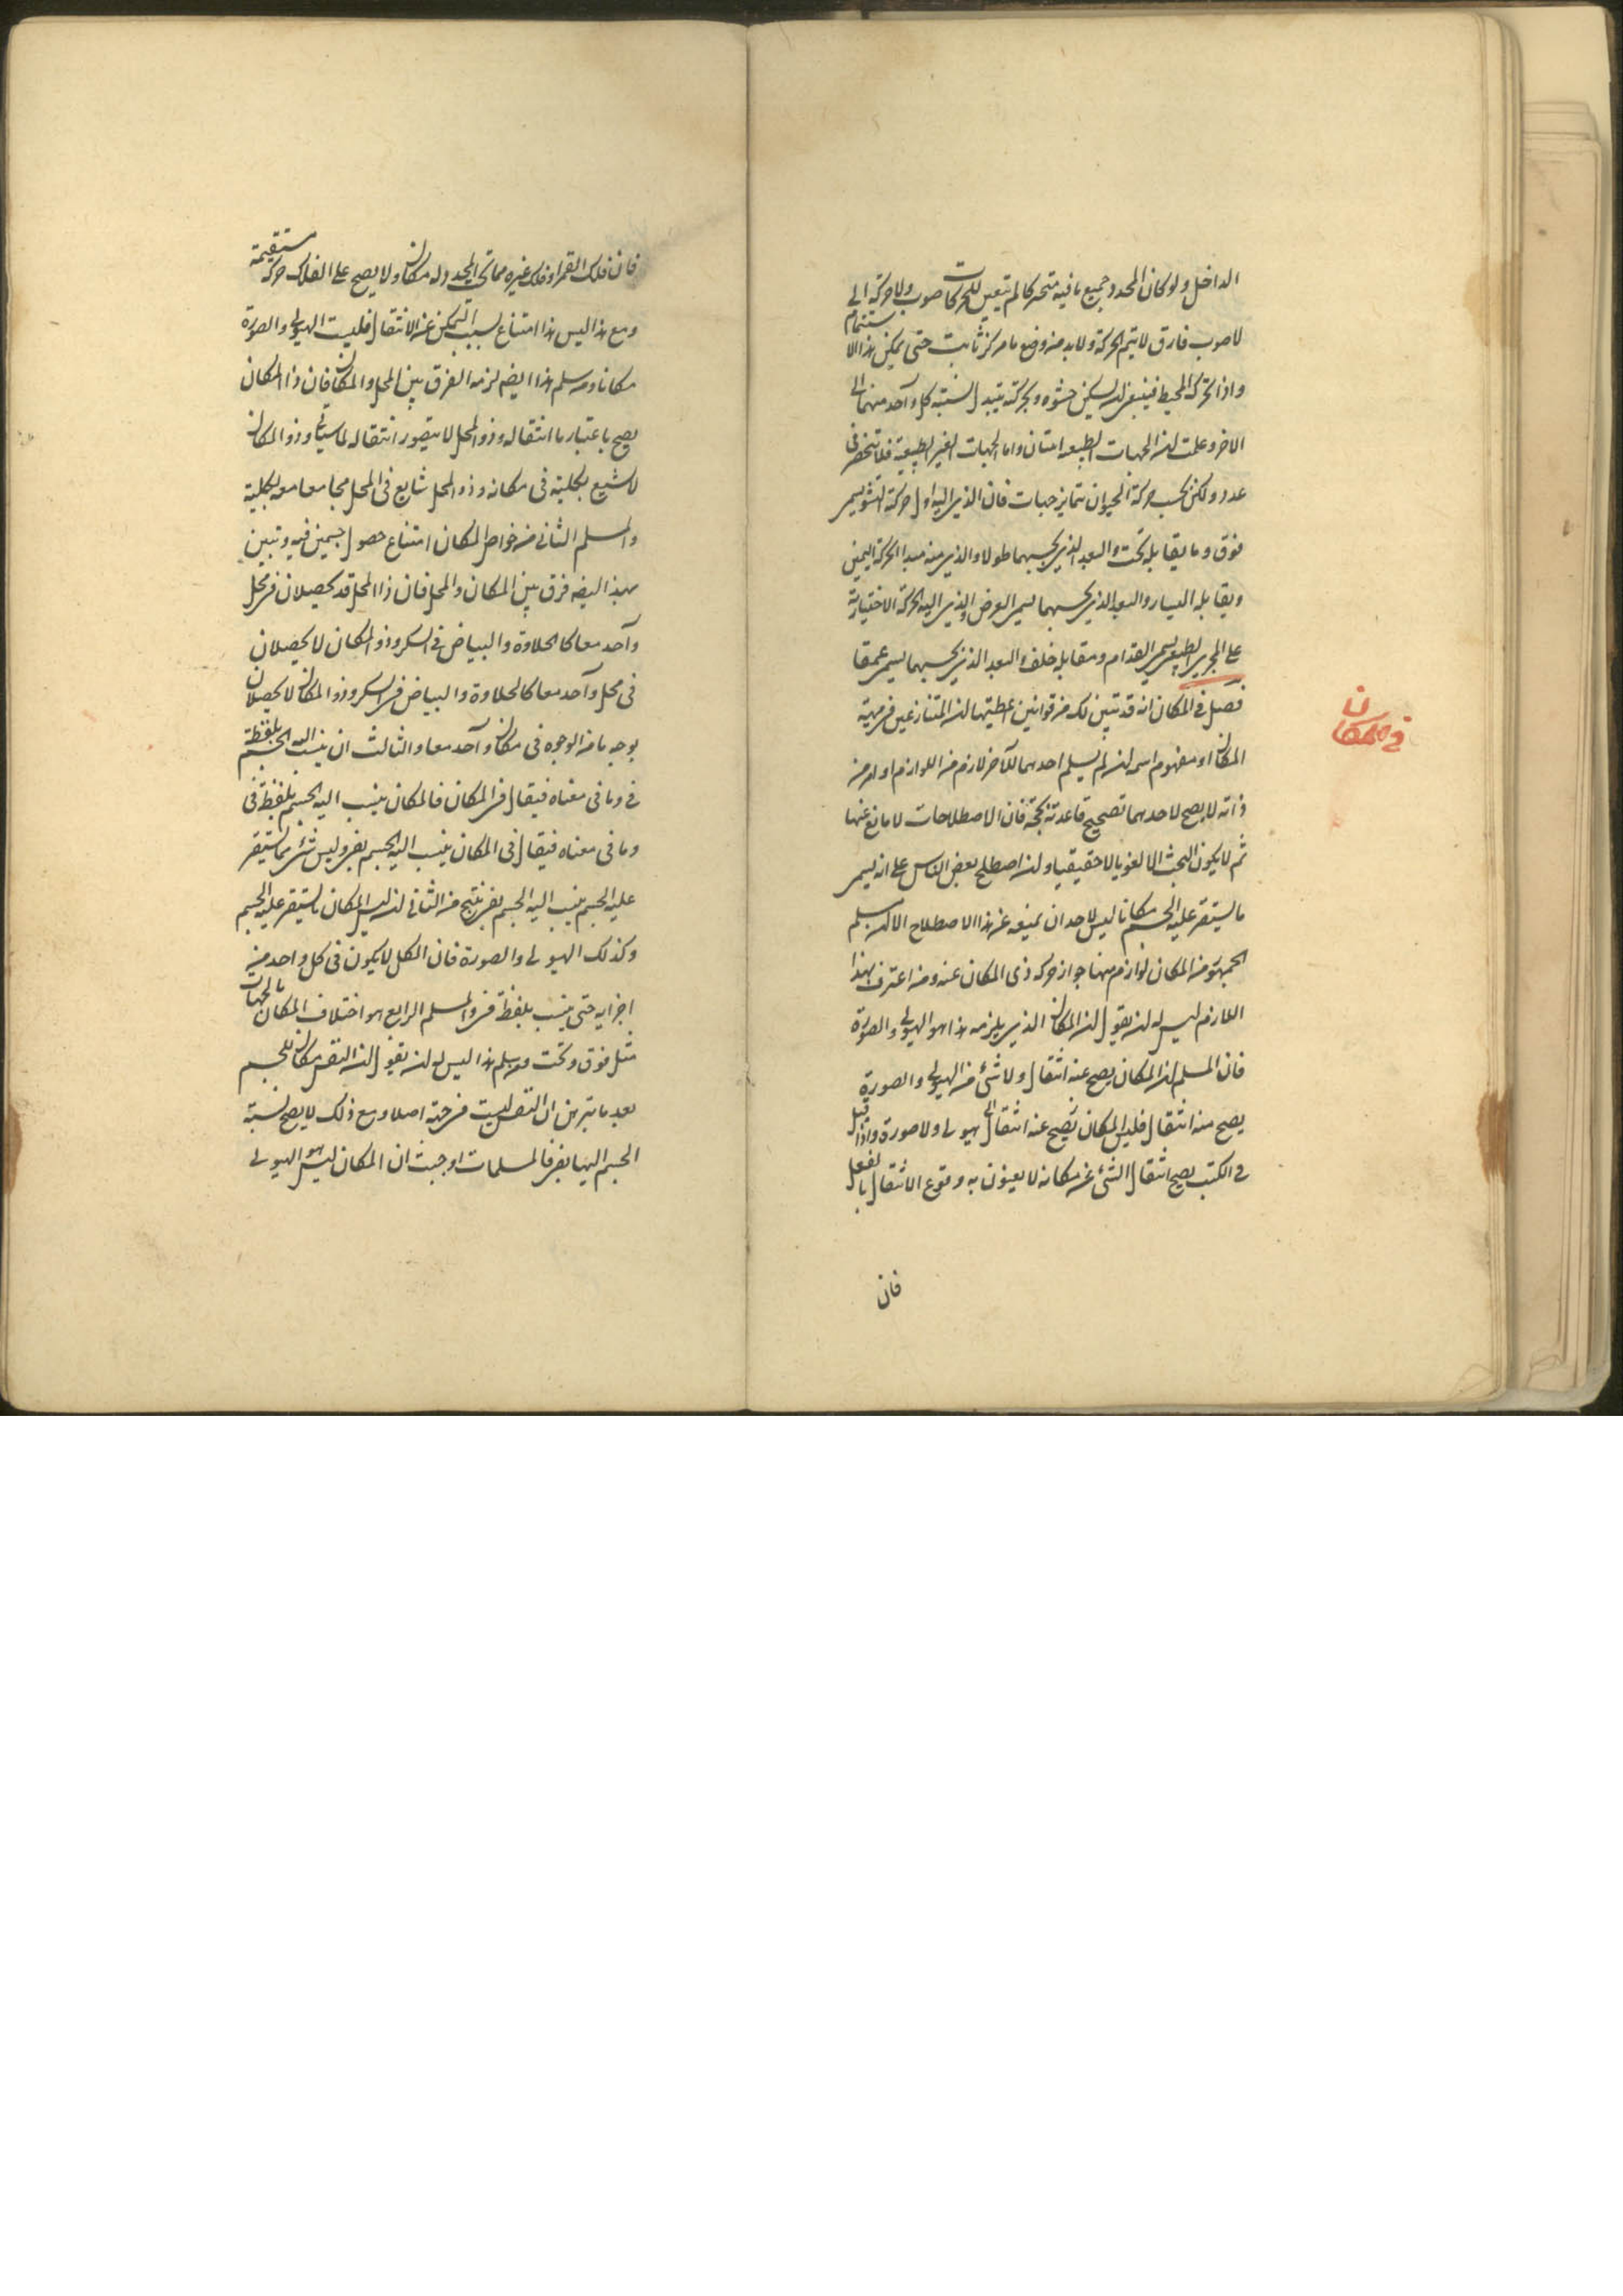 الداخل ولو كان المحدد وجميع ما فيه متحركا لم يتعين للحركات صوب ولا حركة الى
لا صوب فارق لا يتم الحركة ولا بد من وضع ما مركز ثابت حتى يمكن هذا الاستتمام
واذا تحركت المحيط فينبغى ان يسكن حشوه وبحركته يتبدل نسبته كل واحد منهما الى
الاخر وعلمت ان الجهات الطبيعه اثنتان واما الجهات الغير الطبيعية فلا تنحصر فى
عدد ولكن بحسب حركة الحيوان تتمايز جهات فان الذى اليه اول حركة النشو يسمى
فوق وما يقابله تحت والبعد الذى بحسبهما طولا والذى منه مبدا الحركة اليمين
ويقابله اليسار والبعد الذى بحسبهما يسمى العرض والذى اليه الحركة الاختيارية
على المجرى الطبيعى يسمى القدام ومقابله خلف والبعد الذى بحسبهما يسمى عمقا
فصل فى المكان انه قد تبين لك من قوانين اعطيتها ان المتنازعين فى مهية
فى المكان
المكان او مفهوم اسم ان لم يسلم احدهما للآخر لازم من اللوازم او امر من
ذاته لا يصح لاحدهما تصحيح قاعدته بحجة فان الاصطلاحات لا مانع عنها
ثم لا يكون البحث الا لغويا لا حقيقيا وان اصطلح بعض الناس على انه يسمى
ما يستقر عليه الجسم مكانا ليس لاحد ان يمنعه عن هذا الاصطلاح الا ان يسلم
الجمهور من المكان لوازم منها جواز حركه ذى المكان عنه ومن اعترف بهذا
اللازم ليس له ان يقول ان المكان الذى يلزمه هذا هو الهيولى والصورة
فان المسلم ان المكان يصح عنه انتقال ولا شئ من الهيولى والصورة
يصح منه انتقال فليس المكان يصح عنه انتقال الى هيولى ولا صورة واذا قيل
فى الكتب يصح انتقال الشئ عن مكانه لا يعنون به وقوع الانتقال بالفعل
فان
فان فلك القمر او فلك غيره مما تحت المحدد له مكان ولا يصح على الفلك حركة مستقيمة
ومع هذا ليس هذا امتناع بسبب التمكن عن الانتقال فليست الهيولى والصورة
مكانا ومن سلم هذا ايضا لزمه الفرق بين المحل والمكان فان ذا المكان
يصح باعتبار ما انتقاله وذو المحل لا يتصور انتقاله لما سياتى وذو المكان
لا يشيع بكليته فى مكانه وذو المحل شايع فى المحل مجامعا معه بكلية
والمسلم الثانى من خواص المكان امتناع حصول جسمين فيه وتبين
بهذا ايضا فرق بين المكان والمحل فان ذا المحل قد يحصلان فى محل
واحد معا كالحلاوة والبياض فى السكر وذو المكان لا يحصلان
فى محل واحد معا كالحلاوة والبياض فى السكر وذو المكان لا يحصلان
بوجه ما من الوجوه فى مكان واحد معا والثالث ان ينسب اليه الجسم بلفظة
فى وما فى معناه فيقال فى المكان فالمكان ينسب اليه الجسم بلفظ فى
وما فى معناه فيقال فى المكان ينسب اليه الجسم بفى وليس شئ مما يستقر
عليه الجسم ينسب اليه الجسم بفى ينتج من الثانى ان ليس المكان ما يستقر عليه الجسم
وكذلك الهيولى والصورة فان الكل لا يكون فى كل واحد من
اجزايه حتى ينسب بلفظة فى والمسلم الرابع هو اختلاف المكان بالجهات
مثل فوق وتحت ومن سلم هذا ليس له ان يقول ان النفس مكان للجسم
بعد ما تبرهن ان النفس ليست فى جهة اصلا ومع ذلك لا يصح نسبة
الجسم اليها بفى فالمسلمات اوجبت ان المكان ليس هو الهيولى